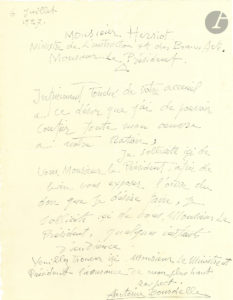 6 Juillet
1927.
Monsieur Herriot
Ministre de l'Instruction et des Beaux Arts
Monsieur Le Président
Infiniment Touché de votre accueil
et ce désir que j'ai de pouvoir
toute mon oeuvre
à notre
Je sollicite ici de
vous Monsieur le Président,
bien vous exposer l'offre du
don que je désire faire, je
sollicite ici de vous, Monsieur le
Président, quelques instants
d'audience.
Veuillez trouver ici Monsieur le Ministre et
Président l'assurance de mon plus haut
respect.
Antoine Bourdelle